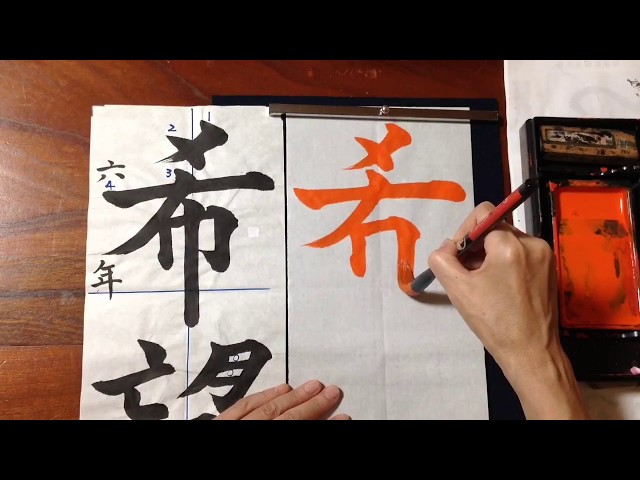 希望
六年
希
2
3
4
1